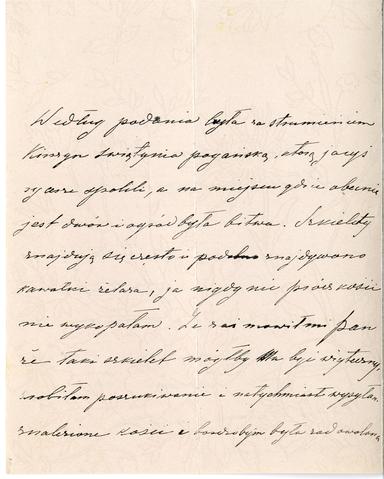 Według podania była za strumieniem
Kinzyn świątynia pogańska, którą jacyś
spalili, a na miejscu gdzie obecnie
jest dwór i ogród była bitwa. Szkielety
znajdują się często i podobno znajdywano
kawałki żelaza, ja nigdy nic prócz kości
nie wykopałam. Że mówił mi pan
że taki szkielet mógłby być użyteczny,
robiłam poszukiwanie i natychmiast wysyłam
znalezione kości i bardzobym była zadowolona